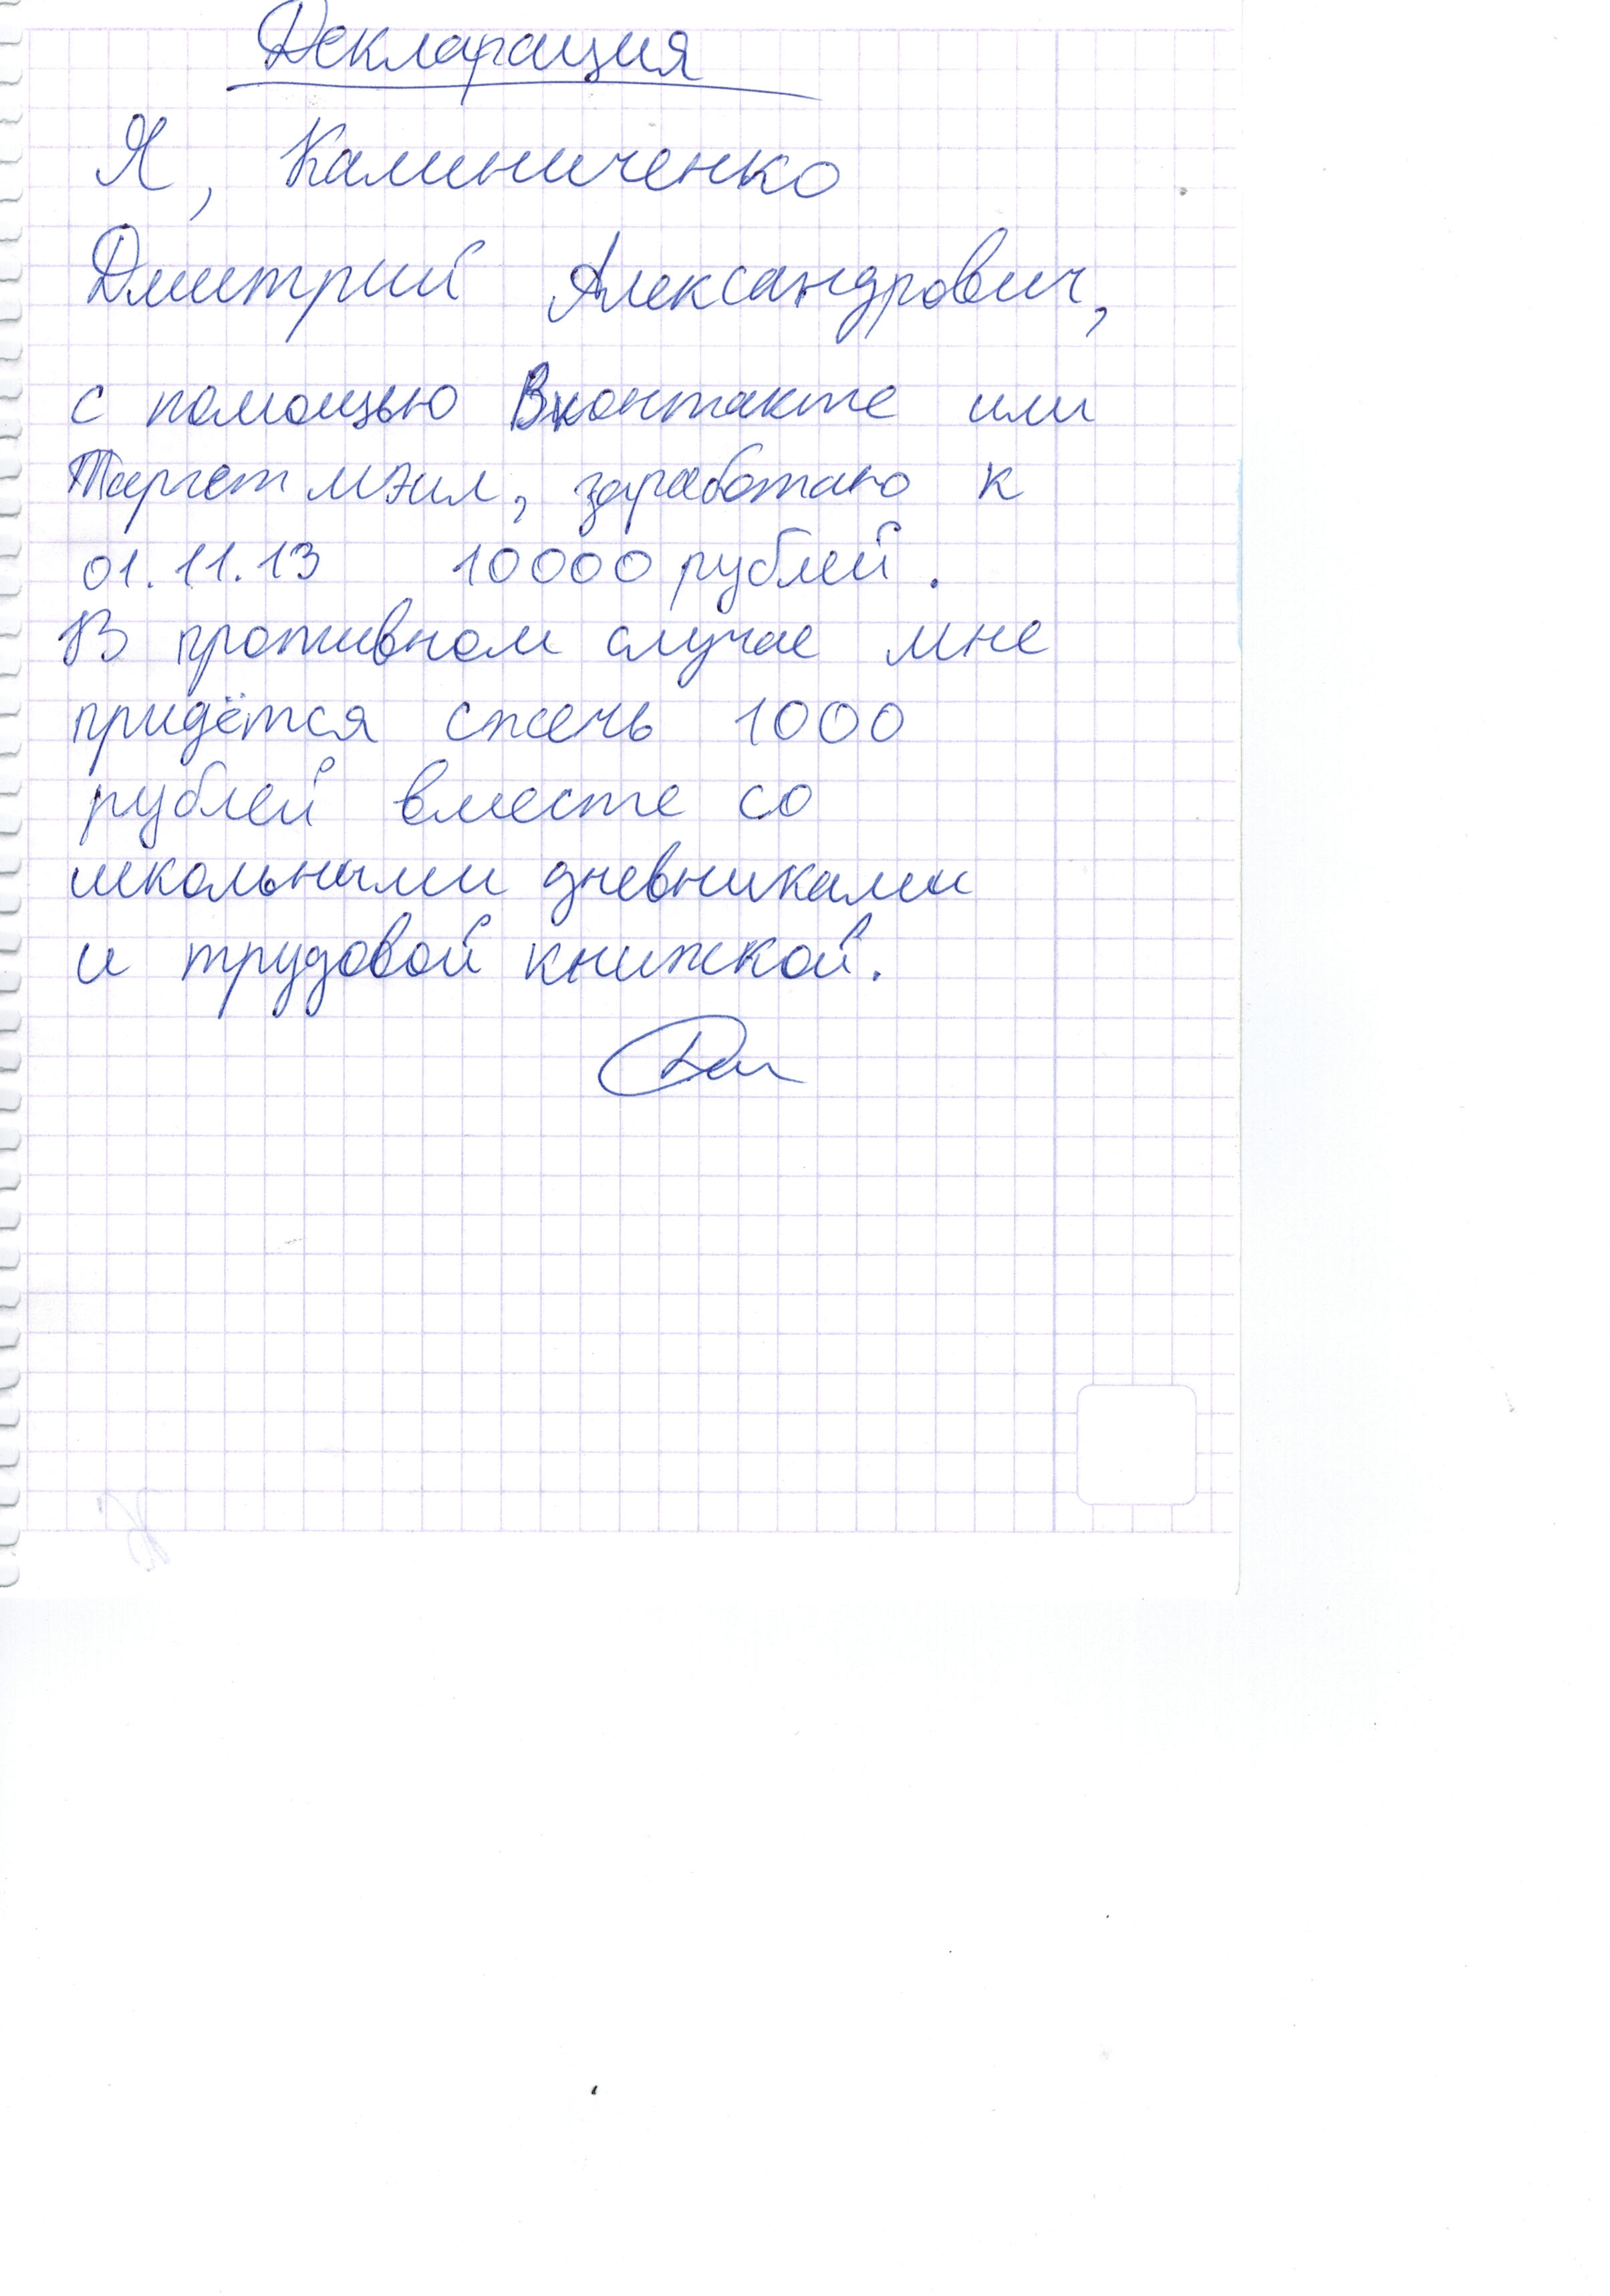 Декларация
Я, Калиниченко
Дмитрий Александрович,
с помощью Вконтакте или
Таргет мэил, заработаю к
01.11.13 10000 рублей.
В противном случае мне
придётся сжечь 1000
рублей вместе со
школьными дневниками
и трудовой книжкой.